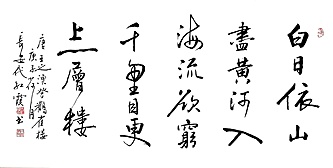 白日依山
盡黃河入
海流欲窮
千里目更
上層樓
唐王之渙登鸛雀樓